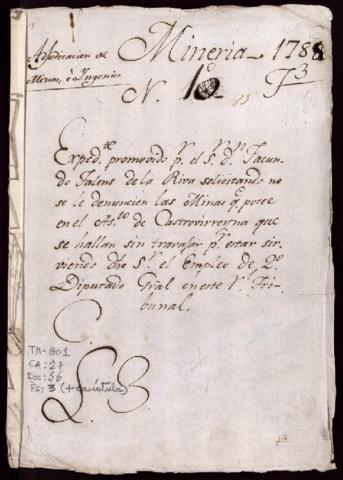 Adjudicacion de
Minas, è Ingenios
Mineria 1788
N. 10
83
Exped.te promovido p.r el S.r d.n Facun-
do Jalens de la Riva solicitando no
se le denuncien las Minas q.e posee
en el As.to de Castrovirreyna que
se hallan sin travajar p.r estar sir-
viendo dho S.r el Empleo de 2.o
Diputado Gral en este R.l Tri-
bunal.
C.
TM-GO1
CA: 27
Doc: 56
Fs: 3 (+ carátula)